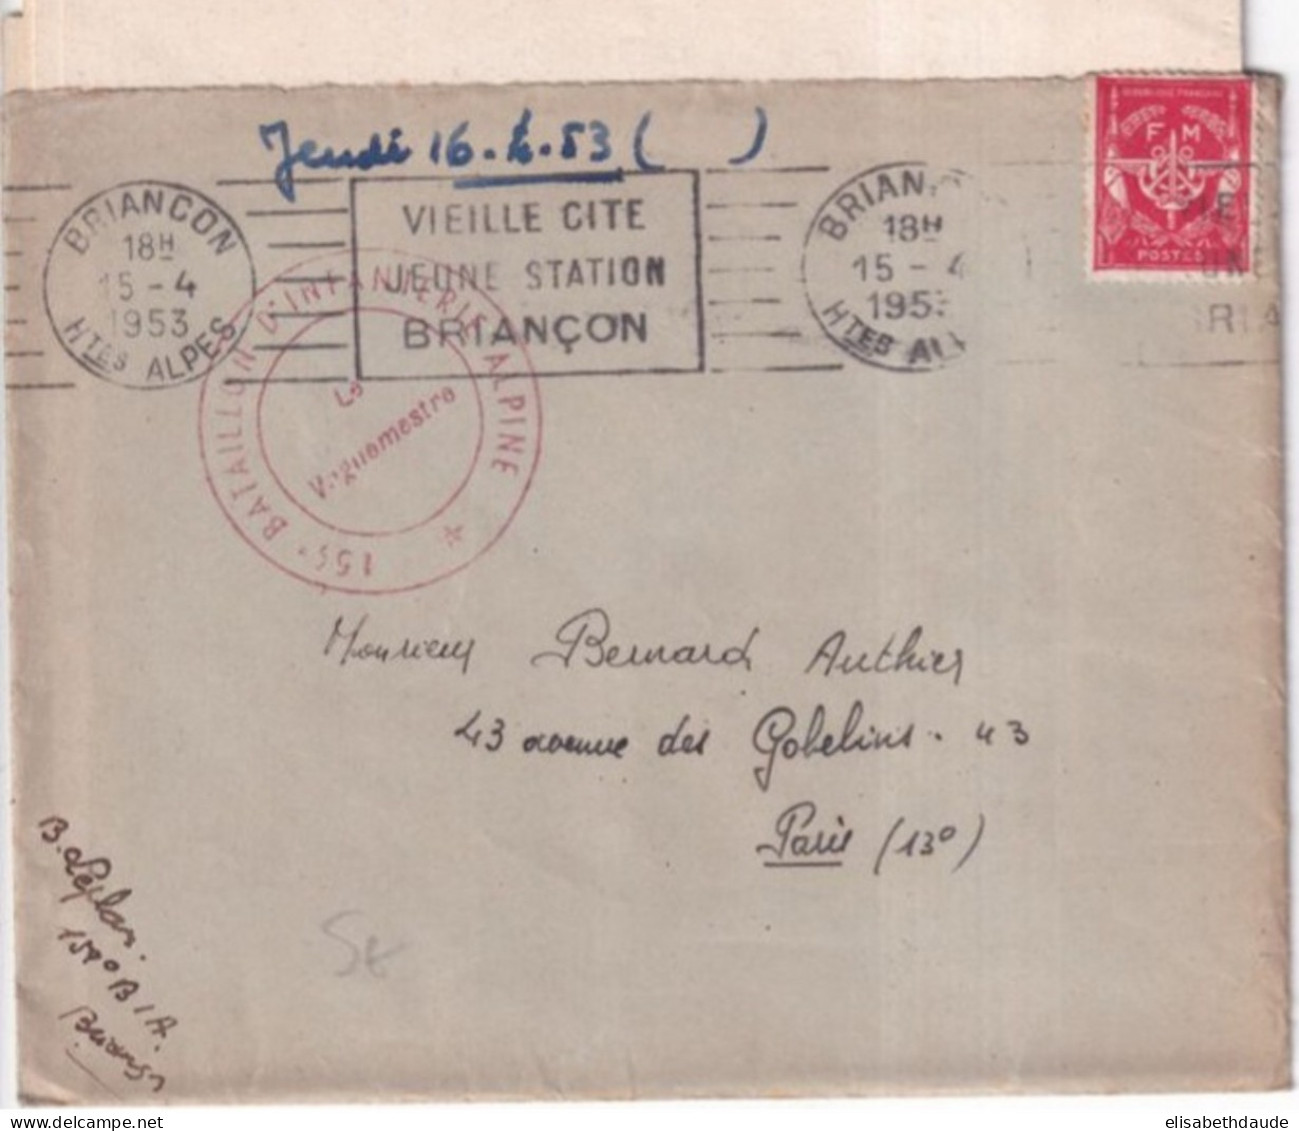 Jeudi 16.4.53 ( )
BRIANÇON
18H
15-4
1953
HTES ALPES
VIEILLE CITE
JEUNE STATION
BRIANÇON
BRIAN
18H
15-4
195
HTES AL
REPUBLIQUE FRANÇAISE
F M
POSTES
BATAILLON D'INFANTERIE ALPINE
Le
Vaguemestre
Monsieur Bernard Authier
43 avenue des Gobelins. 43
Paris (13e)
B.
159e B I A.
Briançon
5t
elisabethdaude